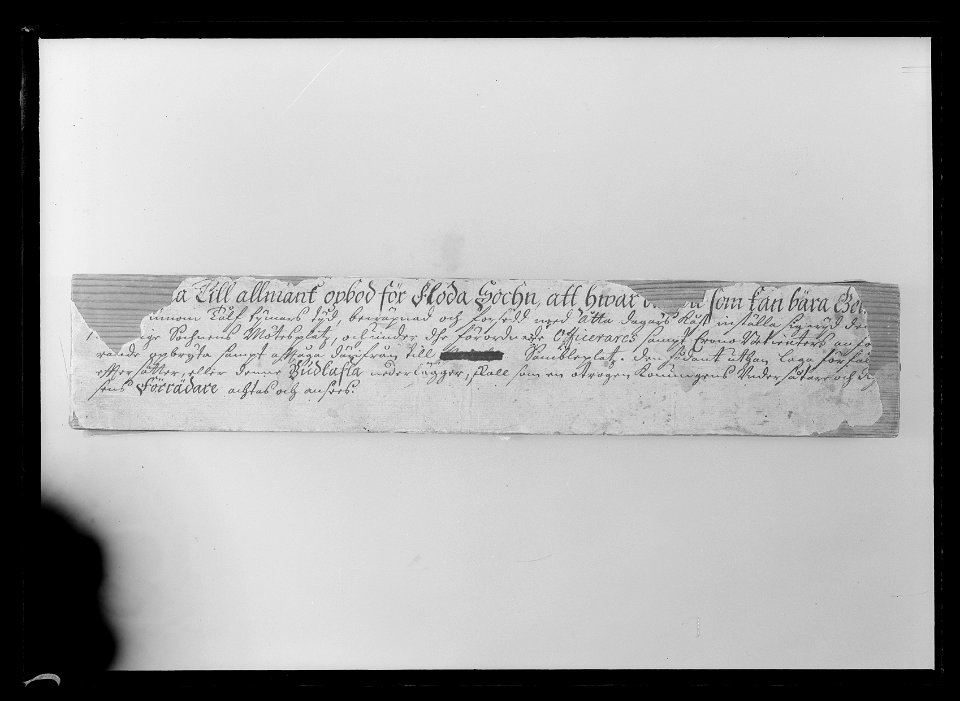 a Till allmänt opbod för Floda Sochn, att hwar som kan bära Ge
innom Tålf tijmars tijd, bewäpnad och försedd med åtta dagars Kost inställa sig wijd de
ige Sochnens Mötesplatz, och under dhe förordnade Officerares sampt Crono Betienters anfö
rande upbryta sampt aftåga därifrån till Sambleplatz. den sådant uthan laga förfall
efftersätter, eller denne Budkafla nederlägger, skall som en otrogen Konungens Undersåtare och Ri
sens Förrädare achtas och ansees.